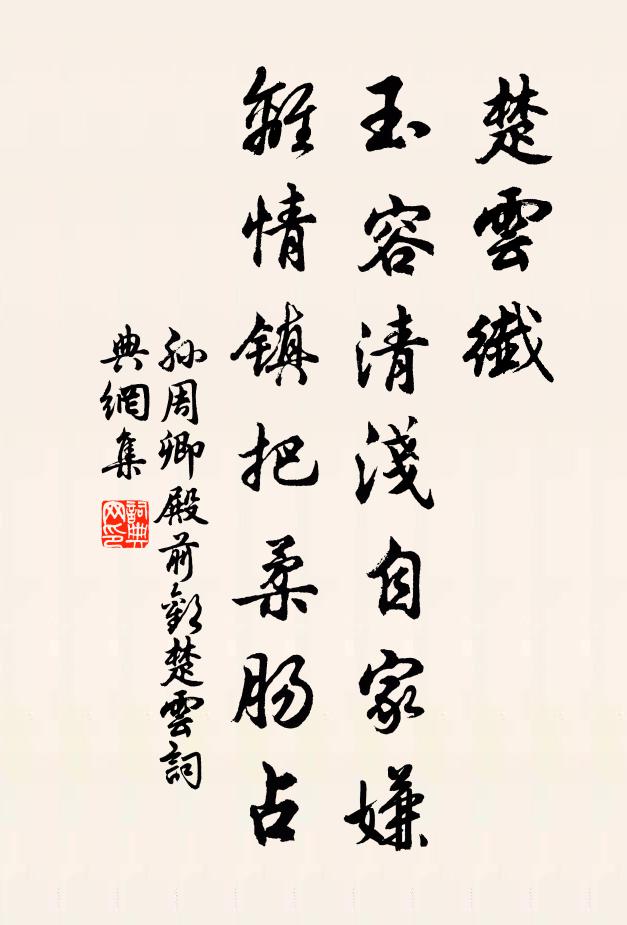 楚雲纖
玉容清淺自家嫌
離情鎮把柔腸占
孙周卿殿前歡楚雲詞
典網集
詞典
网印